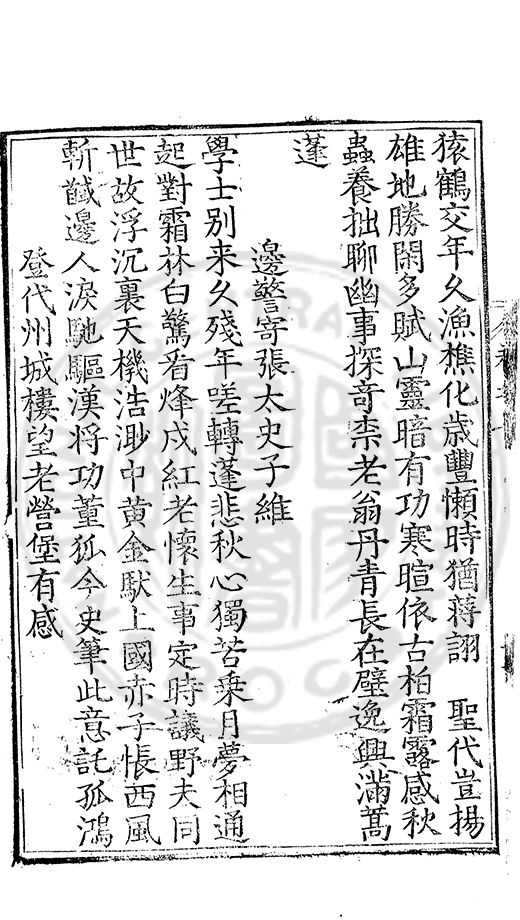 猿鶴交年久漁樵化歲豐懶時猶蔣詡　聖代豈揚
雄地勝閑多賦山靈暗有功寒暄依古柏霜露感秋
蟲養拙聊幽事探奇柰老翁丹青長在壁逸興滿蒿
蓬
邊警寄張太史子維
學士別来久殘年嗟轉蓬悲秋心獨苦乗月夢相通
起對霜林白驚看烽戍紅老懷生事定時議野夫同
世故浮沉裏天機浩渺中黄金獃上國赤子悵西風
斬馘邊人淚馳驅漢将功董狐今史筆此意託孤鴻
登代州城樓望老營堡有感